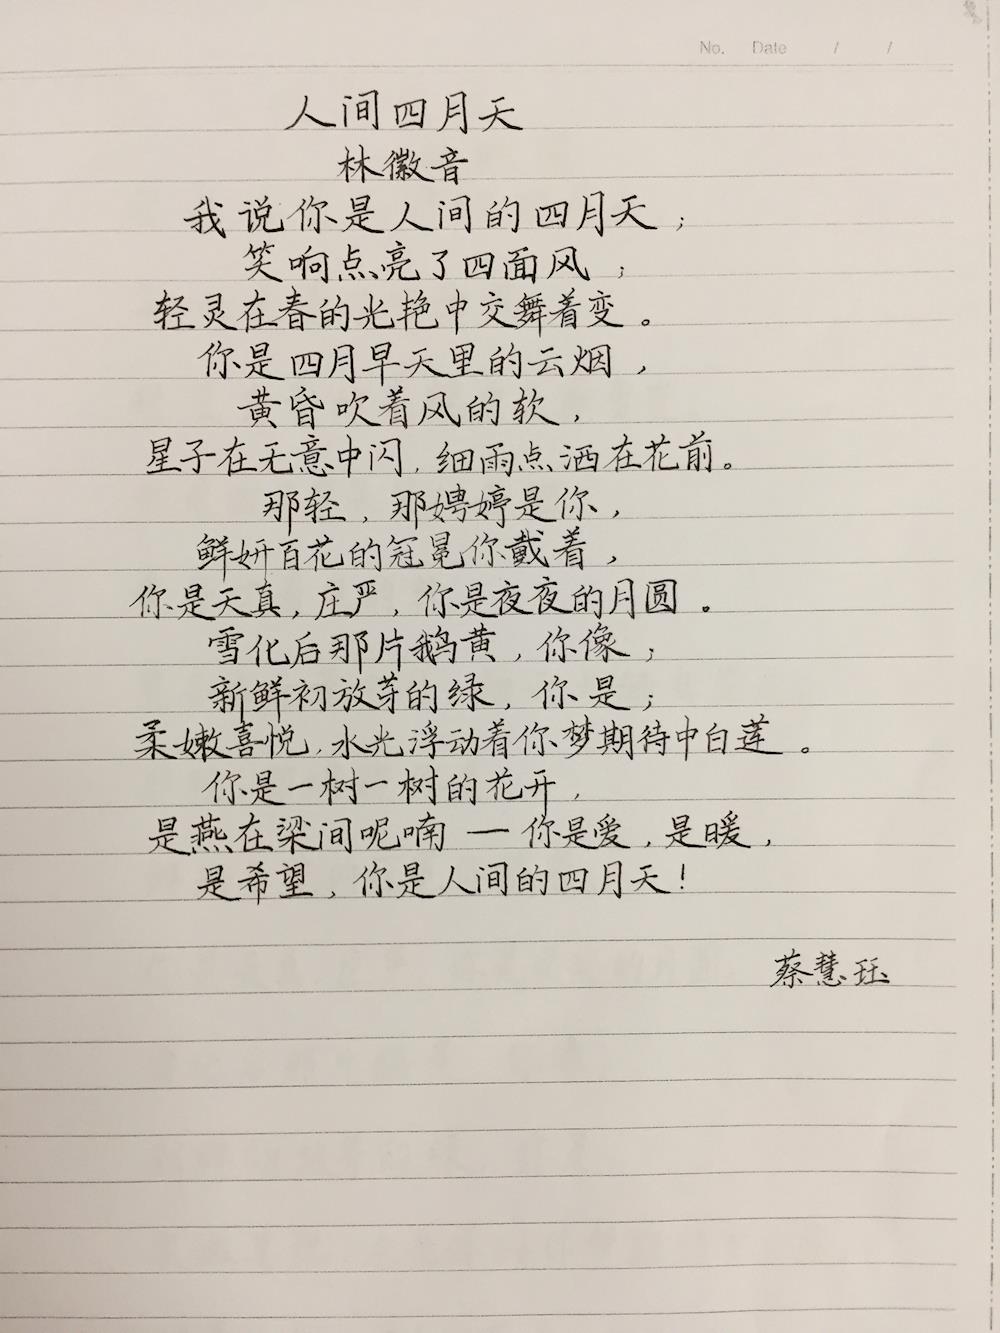 No. Date / /
人间四月天
林徽音
我说你是人间的四月天；
笑响点亮了四面风；
轻灵在春的光艳中交舞着变。
你是四月早天里的云烟，
黄昏吹着风的软，
星子在无意中闪，细雨点洒在花前。
那轻，那娉婷是你，
鲜妍百花的冠冕你戴着，
你是天真，庄严，你是夜夜的月圆。
雪化后那片鹅黄，你像；
新鲜初放芽的绿，你是；
柔嫩喜悦，水光浮动着你梦期待中白莲。
你是一树一树的花开，
是燕在梁间呢喃——你是爱，是暖，
是希望，你是人间的四月天！
蔡慧珏